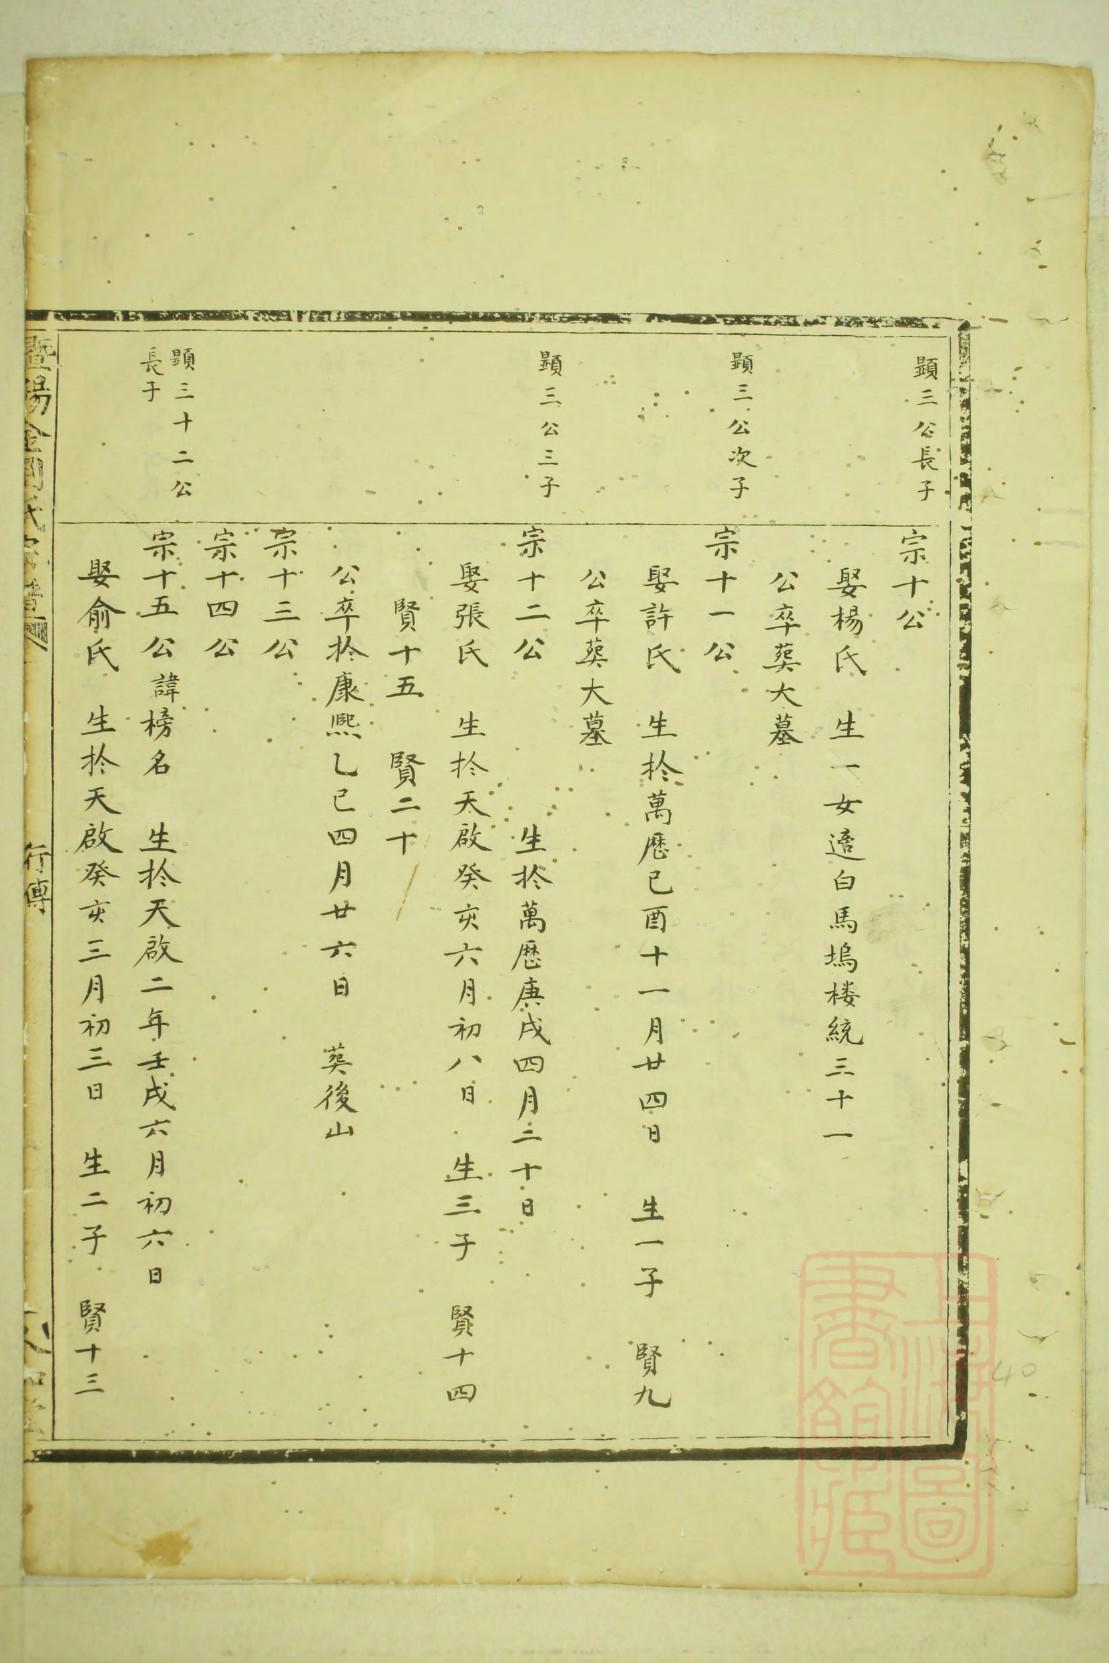 顯三公長子
宗十公
娶楊氏 生一女適白馬塢楼統三十一
公卒葬大墓
顯三公次子
宗十一公
娶許氏 生扵萬歷己酉十一月廿四日 生一子 賢九
公卒葬大墓
顯三公三子
宗十二公 生扵萬歷庚戌四月二十日
娶張氏 生扵天啟癸亥六月初八日 生三子 賢十四
賢十五 賢二十
公卒扵康熙乙巳四月廿六日 葬後山
宗十三公
宗十四公
顯三十二公
長子
宗十五公諱榜名 生扵天啟二年壬戌六月初六日
娶俞氏 生扵天啟癸亥三月初三日 生二子 賢十三
暨陽金閭氏宗譜
行傳
上海圖書館藏
40